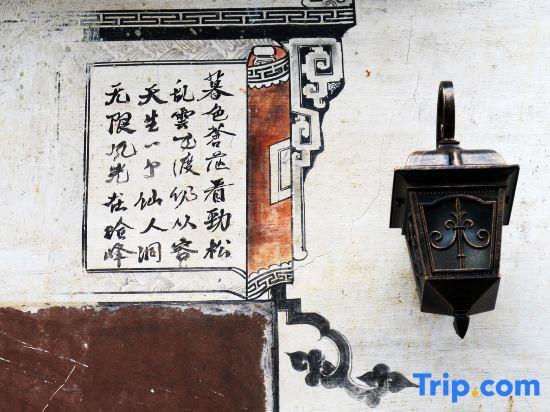 暮色蒼茫看勁松
乱雲飞渡仍从容
天生一个仙人洞
无限风光在险峰
Trip.com